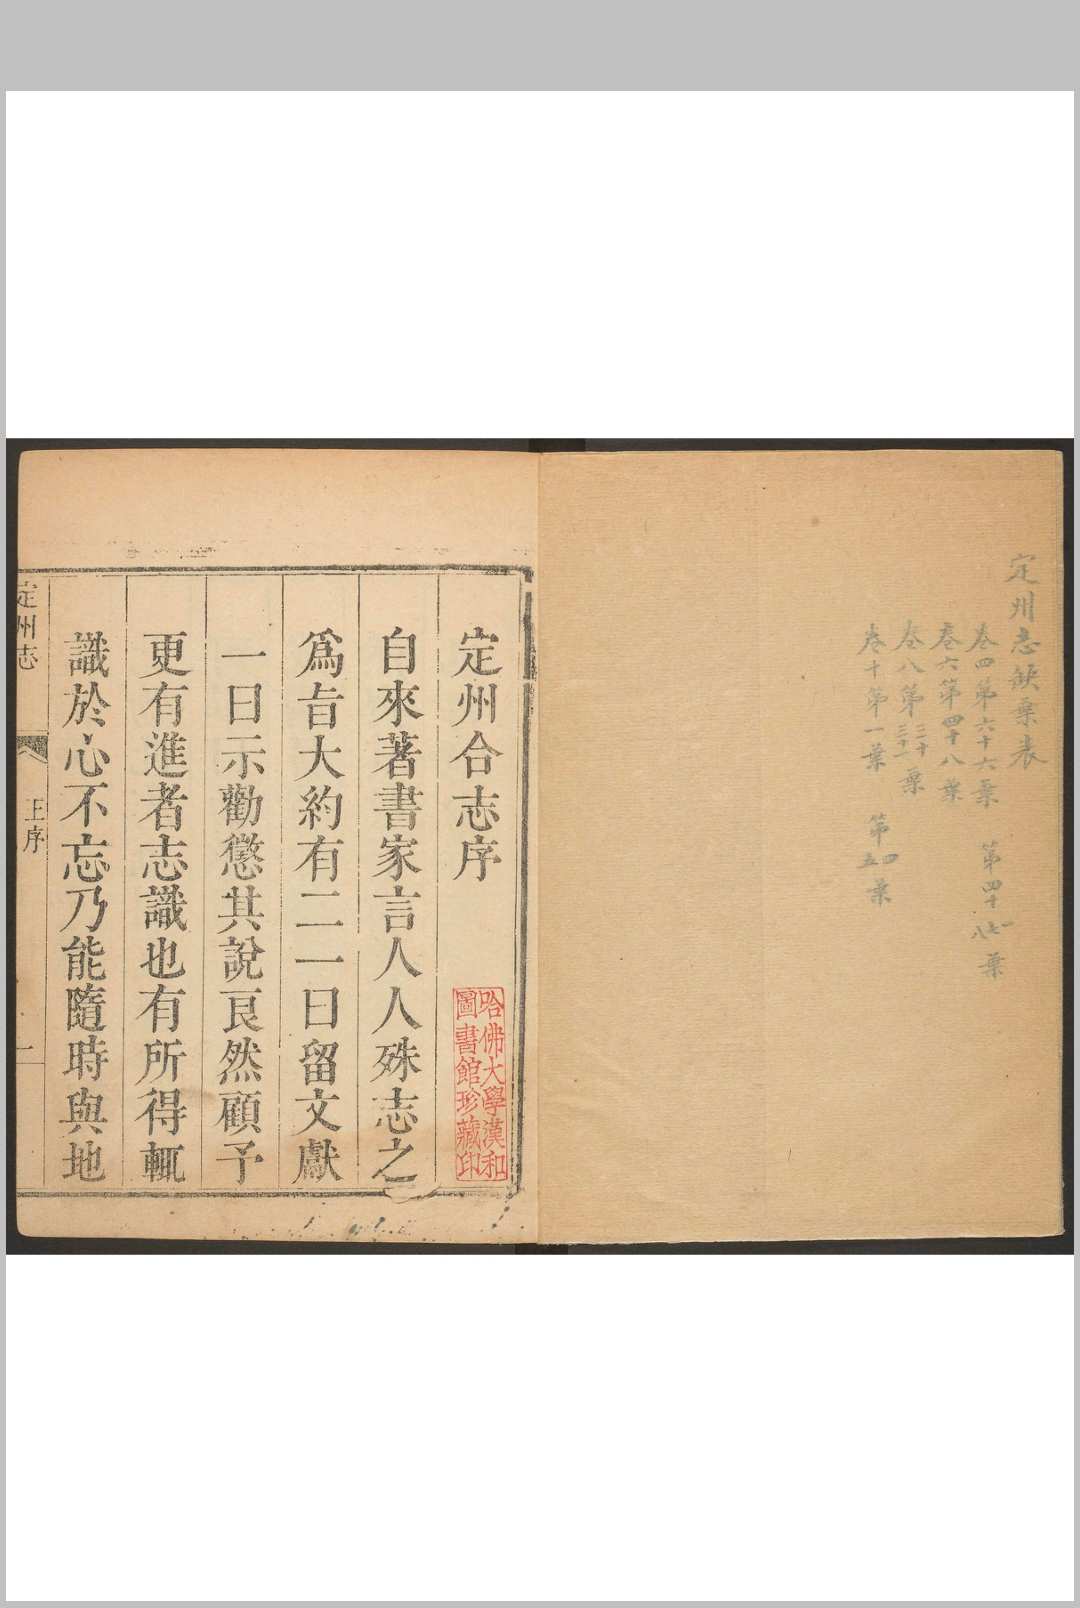 定州志缺葉表
卷四第六十六葉 第四十七八葉
卷六第四十八葉
卷八第三十三十一葉
卷十第一葉 第四五葉
定州合志序
哈佛大學漢和
圖書館珍藏印
自來著書家言人人殊志之
爲旨大約有二一曰留文獻
一曰示勸懲其說良然顧予
更有進者志識也有所得輒
識於心不忘乃能隨時與地
定州志
王序
一